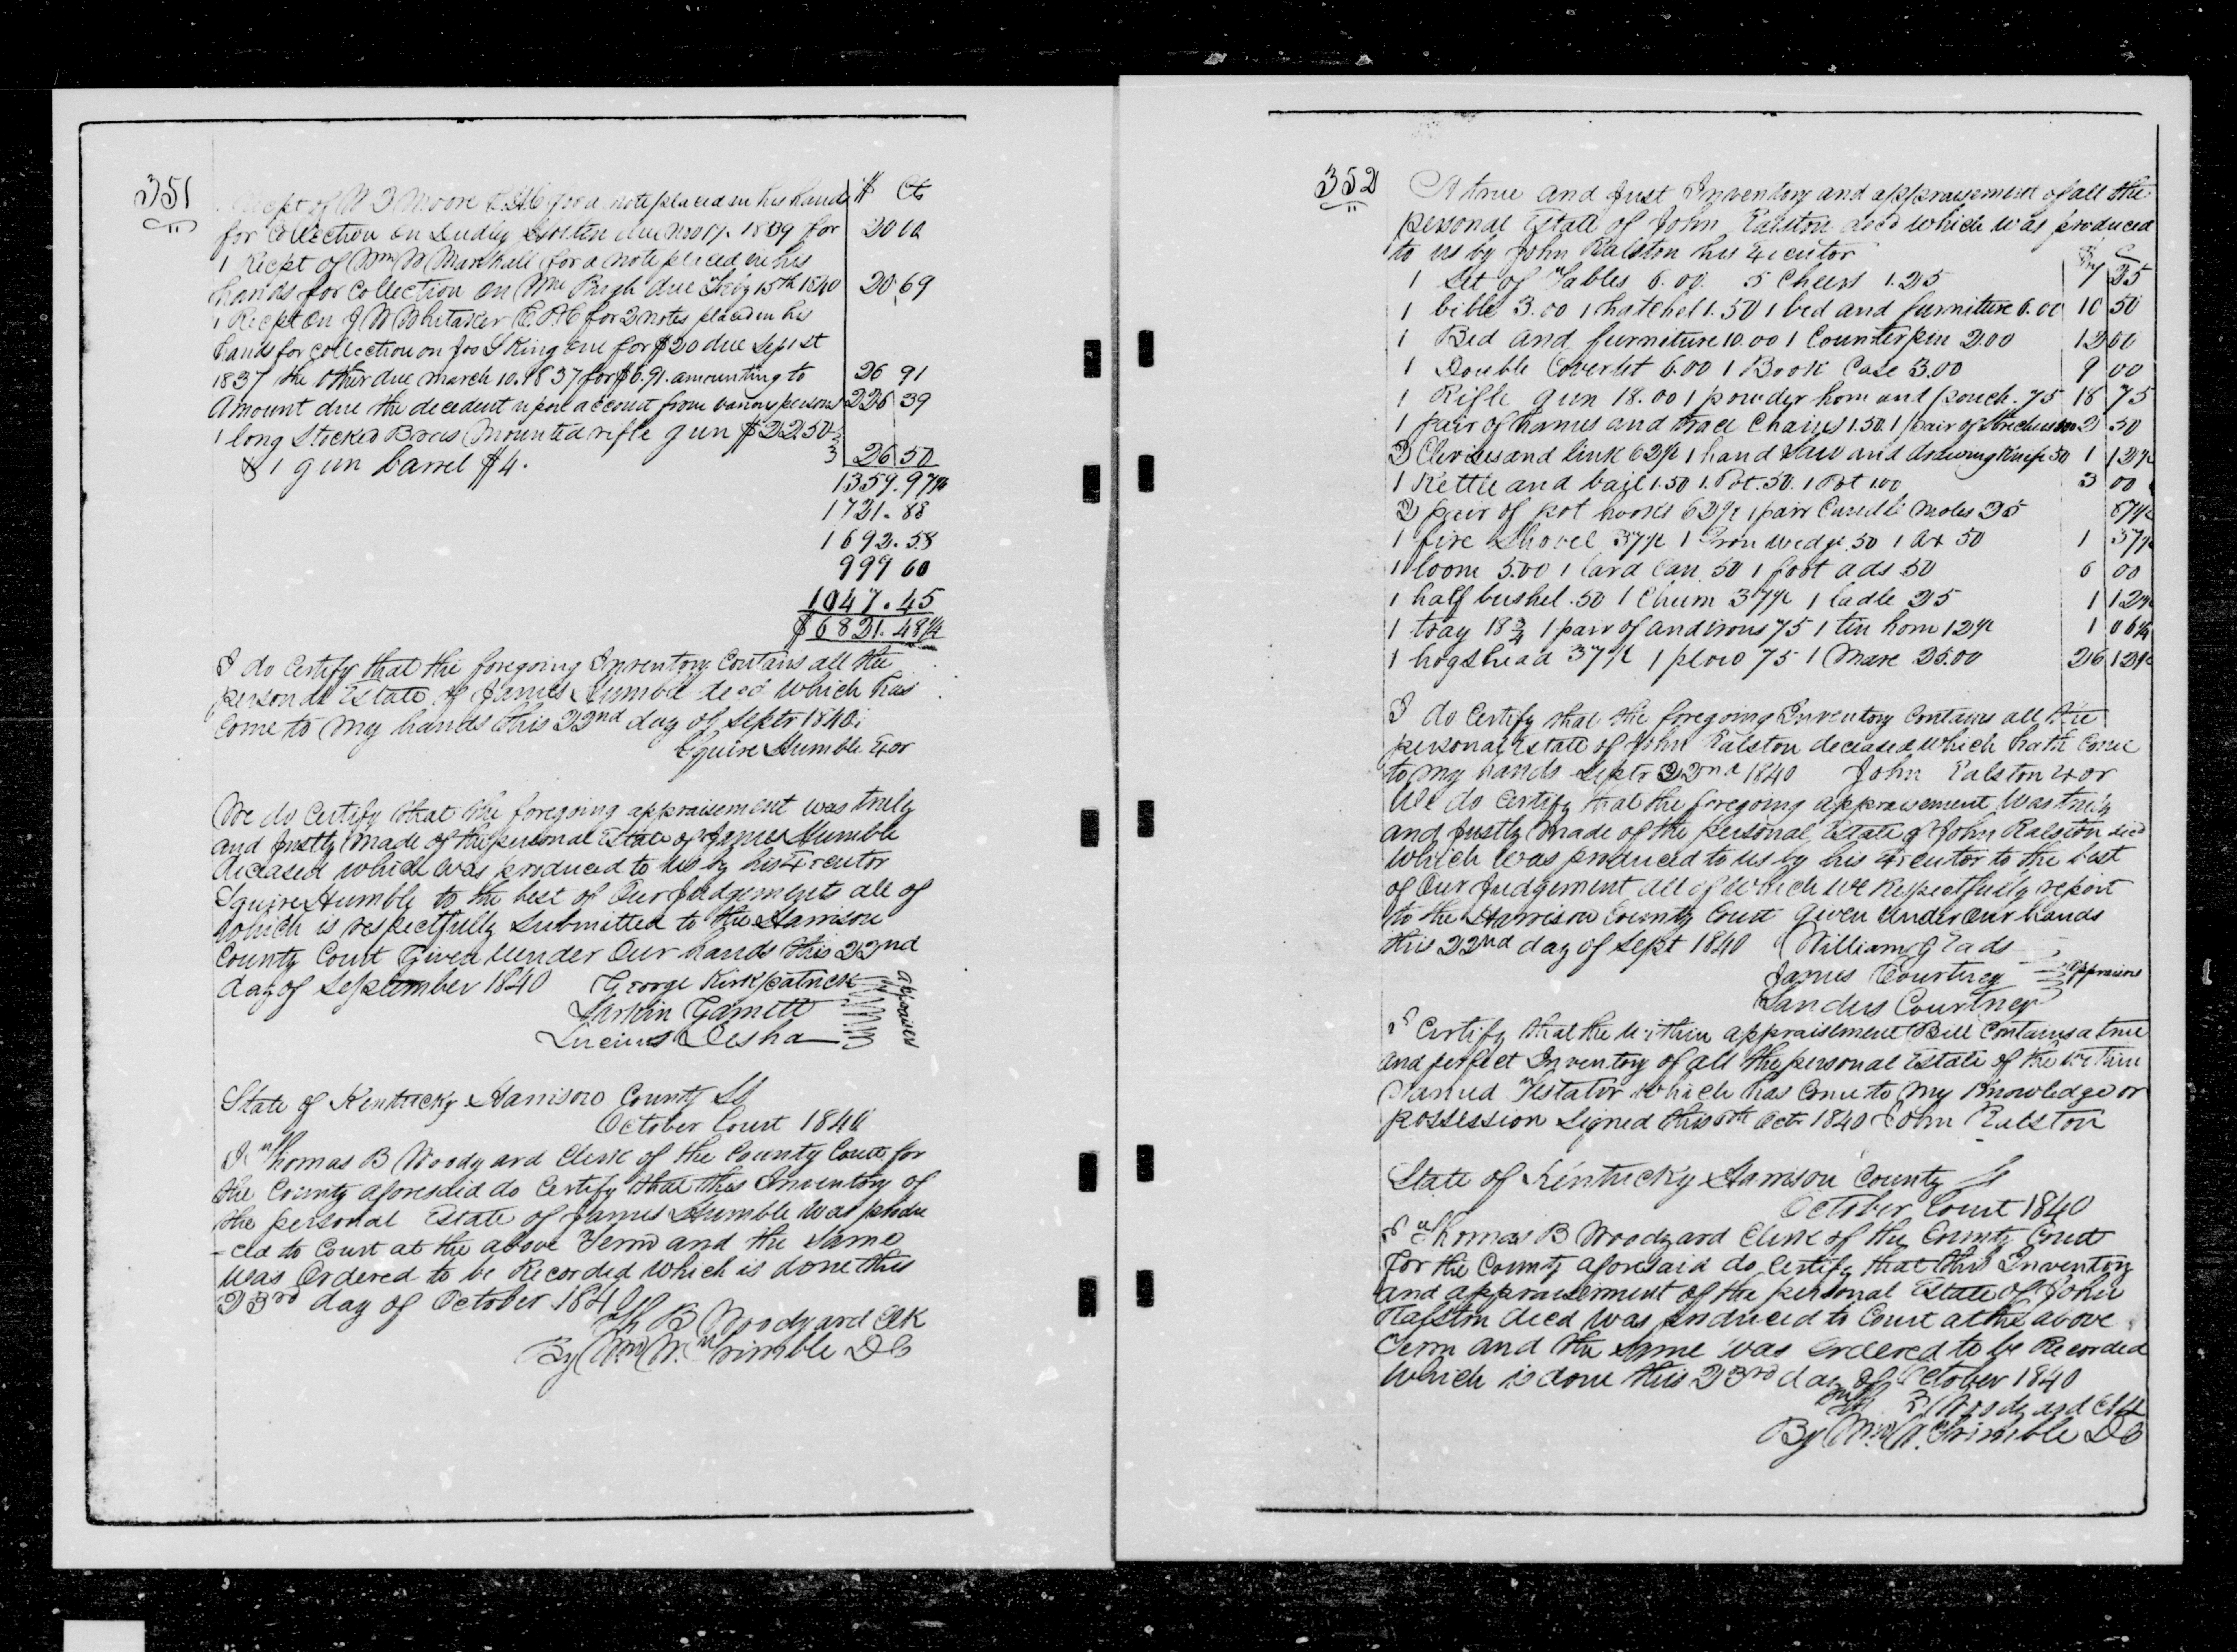 351
Recpt of W T Moore C.H.C for a note placed in his hands $ Cts
for Collection on Dudly Holten due Nov 17. 1839 for 20 00
1 Recpt of Wm W Marshall for a note placed in his
hands for Collection on Wm Pugh due Feby 15th 1840 20 69
1 Recpt on J W Whitaker C.P.C for 2 notes placed in his
hands for collection on Jno S King one for $20 due Sep 1st
1837 the other due March 10. 1837 for $6.91. amounting to 26 91
Amount due the decedent upon account from various persons 226 39
1 long Stocked Brass Mounted rifle gun $22.50
& 1 gun barrel $4. 26 50
1359.97 1/2
1721.88
1692.58
999 60
1047.45
$6821.48 1/2
I do Certify that the foregoing Inventory Contains all the
personal Estate of James Humble decd which has
come to my hands this 22nd day of Septr 1840
Squire Humble Exor
We do Certify that the foregoing appraisement was truly
and Justly Made of the personal Estate of James Humble
deceased which was produced to us by his Executor
Squire Humble to the best of Our Judgements all of
which is respectfully Submitted to the Harrison
County Court Given under Our hands this 22nd
day of September 1840 George Kirkpatrick
Larkin Garnett
Lucius Desha
appraisers
State of Kentucky Harrison County Sct
October Court 1840
I Thomas B Woodyard Clerk of the County Court for
the County aforesaid do Certify that this Inventory of
the personal Estate of James Humble was produ
-ced to Court at the above Term and the Same
was Ordered to be Recorded which is done this
23rd day of October 1840
Th B Woodyard Clk
By Wm W. Trimble DC
352
A true and Just Inventory and appraisement of all the
personal Estate of John Ralston decd which was produced
to us by John Ralston his Executor
1 Set of Tables 6.00. 5 Cheers 1.25 7 25
1 bible 3.00 1 hatchel 1.50 1 bed and furniture 6.00 10 50
1 Bed and furniture 10.00 1 Counterpin 2.00 12 00
1 Double Coverlet 6.00 1 Book Case 3.00 9 00
1 Rifle gun 18.00 1 powder horn and pouch .75 18 75
1 pair of hames and trace Chains 1.50. 1 pair of 2 50
2 Clevises and link 62 1/2 1 hand saw and drawing knife 50 1 12 1/2
1 Kettle and bail 1.50 1 Pot .50. 1 Pot 1.00 3 00
2 pair of pot hooks 62 1/2 1 pair Candle Moles 25 87 1/2
1 fire Shovel 37 1/2 1 Iron wedge .50 1 Ax 50 1 37 1/2
1 loom 5.00 1 lard Can .50 1 foot ads 50 6 00
1 half bushel .50 1 Churn 37 1/2 1 ladle 25 1 12 1/2
1 tray 18 3/4 1 pair of andirons 75 1 tin horn 12 1/2 1 06 1/4
1 hogshead 37 1/2 1 plow 75 1 Mare 25.00 26 12 1/2
I do Certify that the foregoing Inventory Contains all the
personal Estate of John Ralston deceased which hath Come
to my hands Septr 22nd 1840 John Ralston Exor
We do Certify that the foregoing appraisement was truly
and Justly Made of the personal Estate of John Ralston decd
which was produced to us by his Executor to the best
of Our Judgement all of which we Respectfully report
to the Harrison County Court Given under Our hands
this 22nd day of Sept 1840 William Eads
James Courtney appraisers
Sanders Courtney
I Certify that the within appraisement Bill Contains a true
and perfect Inventory of all the personal Estate of the within
Named Testator which has Come to My Knowledge or
possession Signed this Octr 1840 John Ralston
State of Kentucky Harrison County Sct
October Court 1840
I Thomas B Woodyard Clerk of the County Court
for the County aforesaid do Certify that this Inventory
and appraisement of the personal Estate of John
Ralston decd was produced to Court at the above
Term and the Same was Ordered to be Recorded
which is done this 23rd day of October 1840
Th B Woodyard Clk
By Wm W. Trimble DC